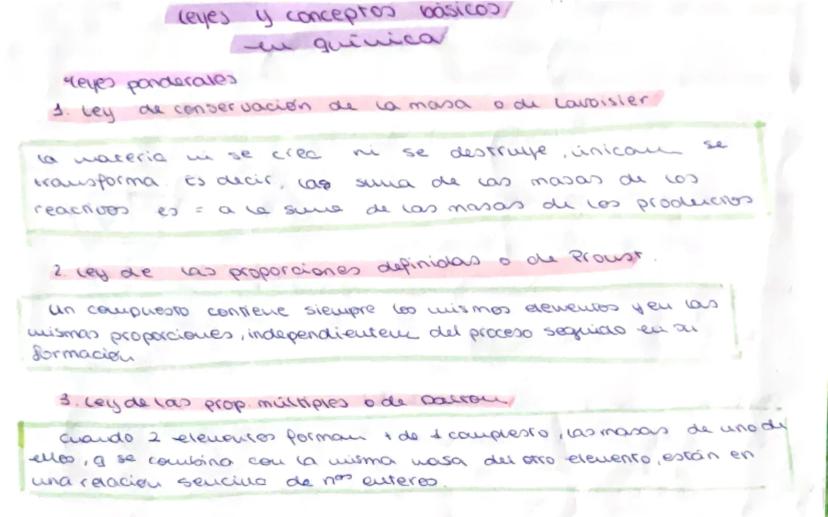 Leyes y conceptos básicos
en química
Leyes ponderales
1. Ley de conservación de la masa o de Lavoisier
La materia ni se crea ni se destruye, únicam se
transforma. Es decir, las suma de las masas de los
reactivos es = a la suma de las masas de los productos
2. Ley de las proporciones definidas o de Proust.
Un compuesto contiene siempre los mismos elementos y en las
mismas proporciones, independientem del proceso seguido en su
formación
3. Ley de las prop. múltiples o de Dalton
Cuando 2 elementos forman + de 1 compuesto, las masas de uno de
ellos, q se combina con la misma masa del otro elemento, están en
una relación sencilla de nos enteros.